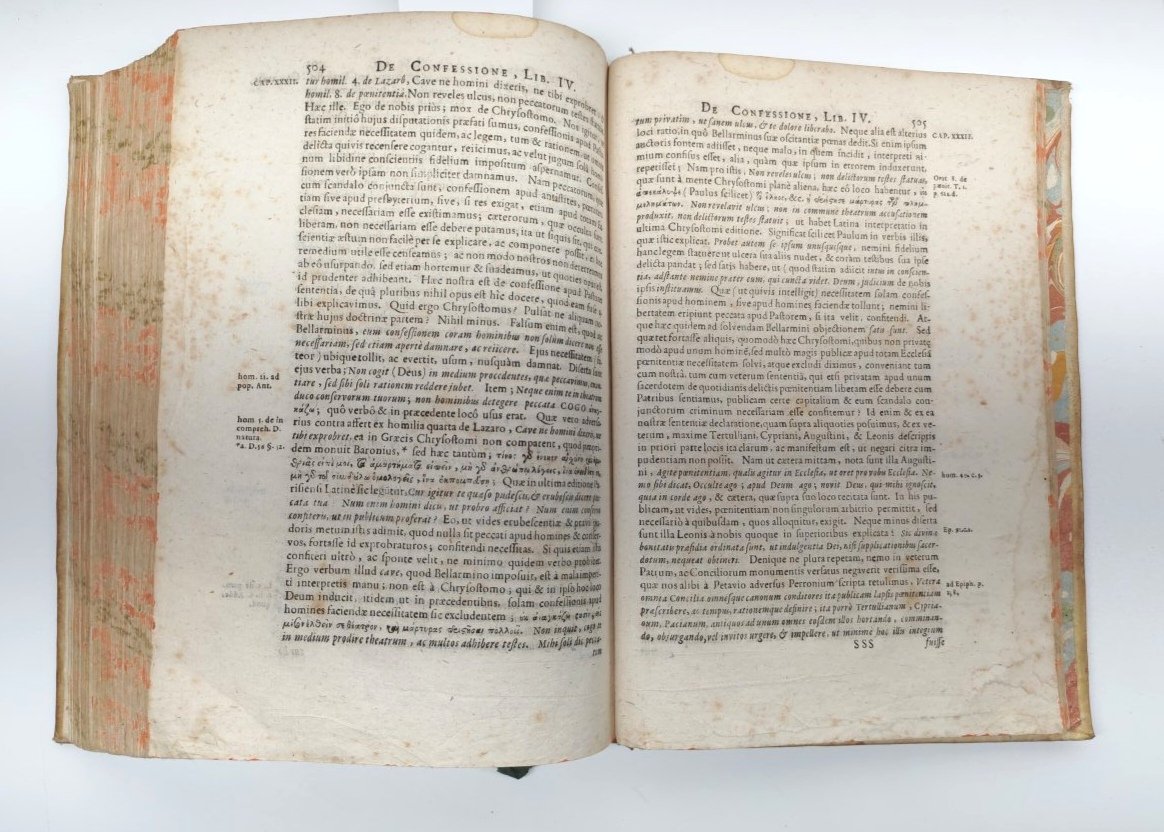 504 DE CONFESSIONE, LIB. IV.
CAP. XXXII.
tur homil. 4. de Lazarô, Cave ne homini dixeris, ne tibi exprobret
homil. 8. de pœnitentiâ. Non reveles ulcus, non peccatorum testes
Hæc ille. Ego de nobis priùs; mox de Chrysostomo. Non
statim initiô hujus disputationis præfati sumus, confessionis apud
res faciendæ necessitatem quidem, ac legem, tum & rationem,
delicta quivis recensere cogantur, reiicimus, ac velut jugum
num libidine conscientiis fidelium impositum aspernamur.
sionem verò ipsam non simpliciter damnamus. Nam peccatorum,
cum scandalo conjuncta sunt, confessionem apud antistites,
tiam sive apud presbyterium, sive, si res exigat, etiam apud totam
clesiam, necessariam esse existimamus; cæterorum, quæ occulta
liberam, non necessariam esse debere putamus, ita ut siquis
scientiæ æstum non facilè per se explicare, ac componere possit,
remedium utile esse censeamus; ac non modo nostros non deterreamus
ab eô usurpando, sed etiam hortemur & suadeamus, ut quoties opus
id prudenter adhibeant. Hæc nostra est de confessione apud Pastorem
sententia, de quâ pluribus nihil opus est hîc docere, quod eam
libi explicavimus. Quid ergo Chrysostomus? Pulsat ne aliquam
stræ hujus doctrinæ partem? Nihil minus. Falsum enim est, quod
Bellarminus, eum confessionem coram hominibus non solùm dicere non esse
necessariam, sed etiam apertè damnare, ac reiicere. Ejus necessitatem
teor) ubique tollit, ac evertit, usum, nusquàm damnat. Diserta
ejus verba; Non cogit (Deus) in medium procedentes, quæ peccavimus,
tiare, sed sibi soli rationem reddere jubet. Item; Neque enim te in theatrum
duco conservorum tuorum; non hominibus detegere peccata COGO
quô verbô & in præcedente locô usus erat. Quæ verò
rius contra affert ex homilia quarta de Lazaro, Cave ne homini dixeris, ne
tibi exprobret, ea in Græcis Chrysostomi non comparent, quod
dem monuit Baronius, * sed hæc tantùm;
Quæ in ultima editione
risiensi Latinè sic legûtur, Cur igitur te quæso pudescit, & erubescis dicere
cata tua? Num enim homini dicis, ut probro afficiat? Num enim conservo
confiteris, ut in publicum proferat? Eo, ut vides erubescentiæ &
doris metum istis adimit, quod nulla sit peccati apud homines & conser-
vos, fortasse id exprobraturos; confitendi necessitas. Si quis etiam
confiteri ultrò, ac sponte velit, ne minimo quidem verbo prohibet.
Ergo verbum illud cave, quod Bellarmino imposuit, est à
ti interpretis manu; non est à Chrysostomo; qui & in ipso hoc loco
Deum inducit, itidem ut in præcedentibus, solam confessionis apud
homines faciendæ necessitatem sic excludentem;
Non inquit, cogo te
in medium prodire theatrum, ac multos adhibere testes. Mihi soli dic
hom. 21. ad
pop. Ant.
hom 5. de in
compreh. D.
natura.
DE CONFESSIONE, LIB. IV. 505
CAP. XXXII.
tum privatim, ut sanem ulcus, & te dolore liberabo. Neque alia est alterius
loci ratio, in quô Bellarminus suæ oscitantiæ pœnas dedit. Si enim ipsum
auctoris fontem adiisset, neque malo, in quem incidit, interpreti ni-
mium confisus esset, alia, quàm quæ ipsum in errorem induxerunt,
reperisset; Nam pro istis, Non reveles ulcus; non delictorum testes statuas,
quæ sunt à mente Chrysostomi planè aliena, hæc eô loco habentur,
(Paulus scilicet)
Non revelavit ulcus; non in commune theatrum accusationem
produxit, non delictorum testes statuit; ut habet Latina interpretatio in
ultima Chrysostomi editione. Significat scilicet Paulum in verbis illis,
quæ istic explicat. Probet autem se ipsum unusquisque, nemini fidelium
hanc legem statuere ut ulcera sua aliis nudet, & coram testibus sua ipse
delicta pandat; sed satis habere, ut (quod statim adiicit) intus in conscien-
tia, adstante nemine præter eum, qui cuncta videt, Deum, judicium de nobis
ipsis instituamus. Quæ (ut quivis intelligit) necessitatem solam confes-
sionis apud hominem, sive apud homines faciendæ tollunt; nemini li-
bertatem eripiunt peccata apud Pastorem, si ita velit, confitendi. At-
que hæc quidem ad solvendam Bellarmini objectionem satis sunt. Sed
quæret fortasse aliquis, quomodò hæc Chrysostomi, quibus non privatę
modò apud unum hominę, sed multò magis publicæ apud totam Ecclesiā
pœnitentiæ necessitatem solvi, atque excludi diximus, conveniant tum
cum nostrâ, tum cum veterum sententiâ, qui etsi privatam apud unum
sacerdotem de quotidianis delictis pœnitentiam liberam esse debere cum
Patribus sentiamus, publicam certe capitalium & cum scandalo con-
junctorum criminum necessariam esse confitemur? Id enim & ex ea
nostræ sententiæ declaratione, quam supra aliquoties posuimus, & ex ve-
terum, maxime Tertulliani, Cypriani, Augustini, & Leonis descriptis
in priori parte locis ita clarum, ac manifestum est, ut negari citra im-
pudentiam non possit. Nam ut cætera mittam, nota sunt illa Augusti-
ni, Agite pœnitentiam, qualis agitur in Ecclesia, ut oret pro vobis Ecclesia. Ne-
mo sibi dicat, Occulte ago; apud Deum ago; novit Deus, qui mihi ignoscit,
quia in corde ago, & cætera, quæ supra suo loco recitata sunt. In his pu-
blicam, ut vides, pœnitentiam non singulorum arbitrio permittit, sed
necessariò à quibusdam, quos alloquitur, exigit. Neque minus diserta
sunt illa Leonis à nobis quoque in superioribus explicata? Sic divinæ
bonitatis præsidia ordinata sunt, ut indulgentia Dei, nisi supplicationibus sacer-
dotum, nequeat obtineri. Denique ne plura repetam, nemo in veterum
Patrum, ac Conciliorum monumentis versatus negaverit verissima esse,
quæ nos alibi à Petavio adversus Perronium scripta retulimus, Vetera
omnia Concilia omnesque canonum conditores ita publicam lapsis pœnitentiam
præscribere, ac tempus, rationemque definire; ita porrò Tertullianum, Cypria-
num, Pacianum, antiquos ad unum omnes eosdem illos hortando, comminan-
do, objurgando, vel invitos urgere, & impellere, ut minime hoc illis integrum
SSS fuisse
Orat. 8. de
pœnit. T. 1.
hom. 41. c. 5.
Ep. 91.
ad Epiph. p.